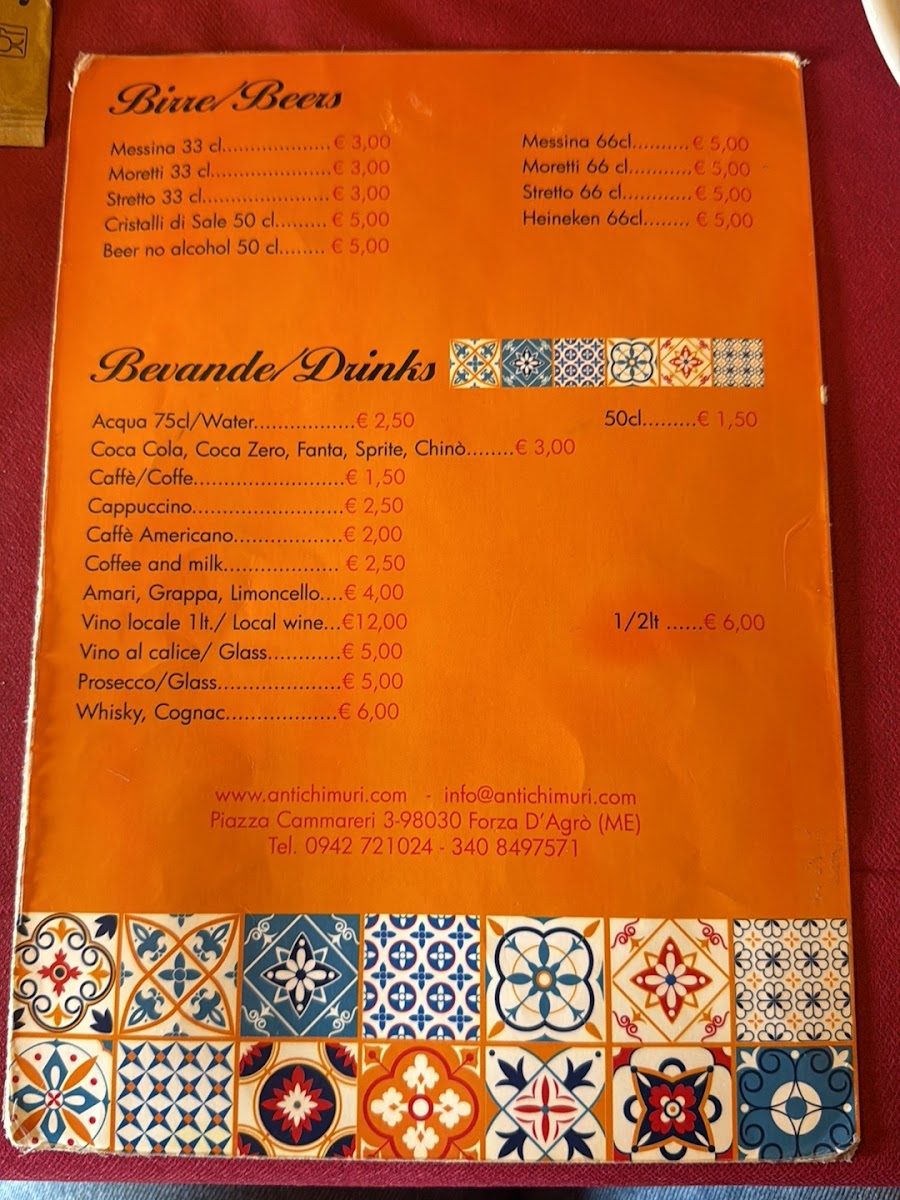 Birre/Beers
Messina 33 cl...................€ 3,00
Moretti 33 cl....................€ 3,00
Stretto 33 cl.....................€ 3,00
Cristalli di Sale 50 cl.........€ 5,00
Beer no alcohol 50 cl........ € 5,00
Messina 66cl..........€ 5,00
Moretti 66 cl...........€ 5,00
Stretto 66 cl............€ 5,00
Heineken 66cl........ € 5,00
Bevande/Drinks
Acqua 75cl/Water.................€ 2,50 50cl.........€ 1,50
Coca Cola, Coca Zero, Fanta, Sprite, Chinò........€ 3,00
Caffè/Coffe.........................€ 1,50
Cappuccino.........................€ 2,50
Caffè Americano..................€ 2,00
Coffee and milk................... € 2,50
Amari, Grappa, Limoncello....€ 4,00
Vino locale 1lt./ Local wine...€12,00 1/2lt ......€ 6,00
Vino al calice/ Glass............€ 5,00
Prosecco/Glass.....................€ 5,00
Whisky, Cognac...................€ 6,00
www.antichimuri.com - info@antichimuri.com
Piazza Cammareri 3-98030 Forza D'Agrò (ME)
Tel. 0942 721024 - 340 8497571